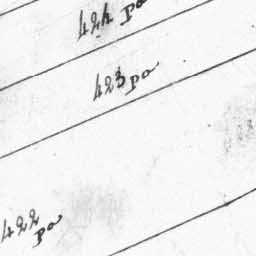 424 po
423 po
422
po